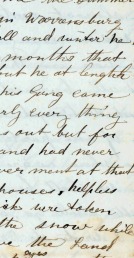 in Warrensburg
all and winter he
months that
out he at length
his Gang came
rly ever thing
s out but for
and had never
verment at that
houses, helpless
ick were taken
the snow while
the Land